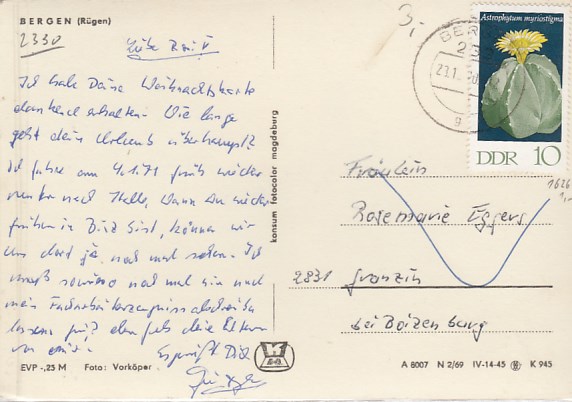 BERGEN (Rügen)
2330
Liebe
3,-
Astrophytum myriostigma
DDR 10
Ich habe Deine Weihnachtskarte
dankend erhalten. Wie lange
geht dein Urlaub überhaupt?
Ich fahre am 4.1.71 früh wieder
runter nach Halle. Wenn Du wieder
früher in Binz bist, können wir
uns dort ja noch mal sehen. Ich
muß sowieso noch mal hin und
mein
lassen. grüß ebenfalls deine Eltern
von mir. Es grüßt Dich
konsum fotocolor magdeburg
Fräulein
Rosemarie Eggers
2831 Granzin
bei Boizenburg
1626
1,-
EVP -,25 M Foto: Vorköper
A 8007 N 2/69 IV-14-45 K 945